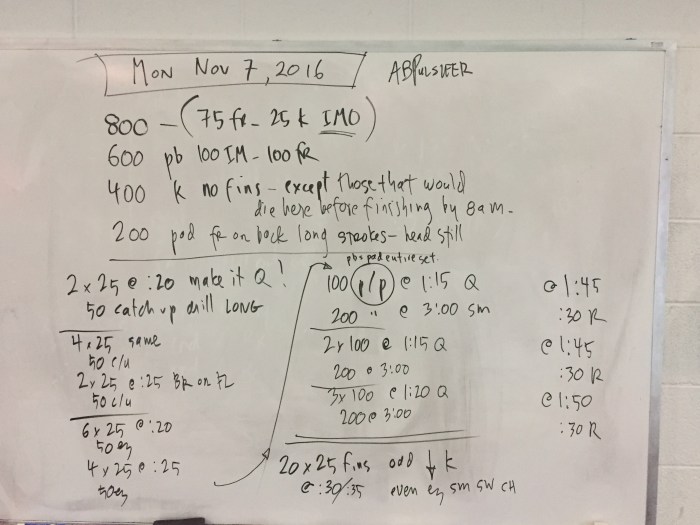 MON NOV 7, 2016
800 - (75 fr - 25 k IMO)
600 pb 100 IM - 100 FR
400 k no fins - except those that would
die here before finishing by 8 am -
200 pad fr on back long strokes - head still
2 x 25 @ :20 make it Q!
50 catch up drill LONG
4 x 25 same
50 c/u
2 x 25 @ :25 BK or FL
50 c/u
6 x 25 @ :20
50 ez
4 x 25 @ :25
50 ez
pb + pad entire set.
100 p/p @ 1:15 Q @ 1:45
200 " @ 3:00 sm :30 R
2 x 100 @ 1:15 Q @ 1:45
200 @ 3:00 :30 R
3 x 100 @ 1:20 Q @ 1:50
200 @ 3:00 :30 R
20 x 25 fins odd ↓ k
@ :30/:35 even ez sm SW CH